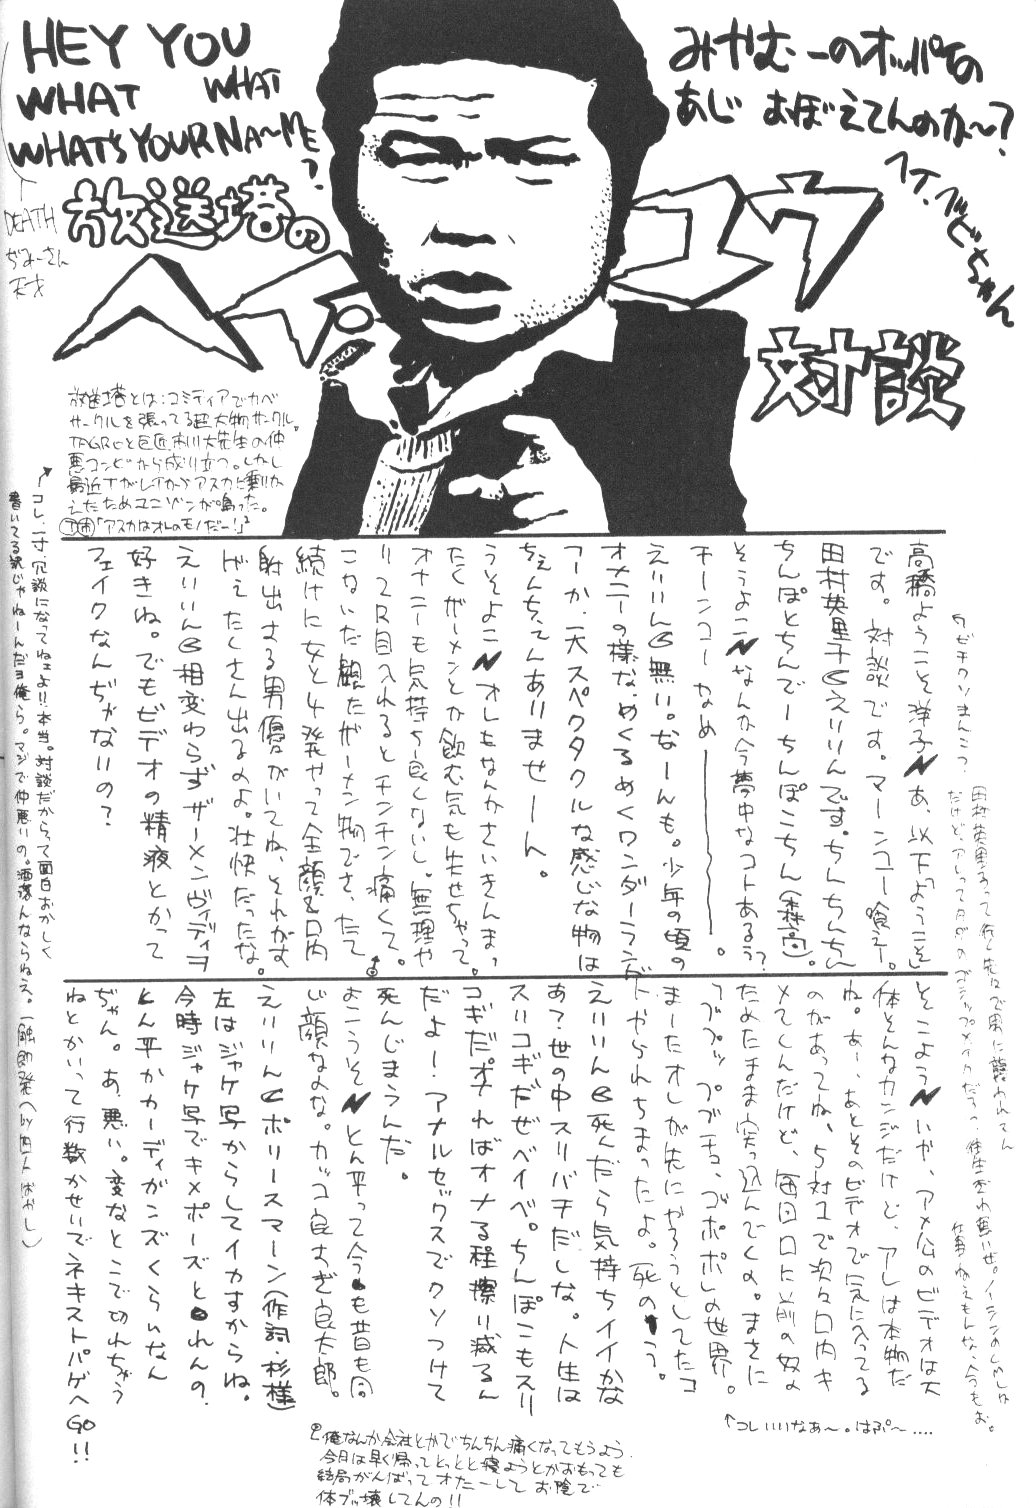 HEY YOU
WHAT WHAT
WHAT'S YOUR NA〜ME?
DEATH
ぢみーさん
天才
みやむーのオッパイの
あじ おぼえてんのか〜?
放送塔の
ヘイ ユウ
対談
放送塔とは:コミティアでカベ
サークルを張ってる超大物サークル。
と巨匠市川大先生の仲
悪コンビから成り立つ。しかし
最近
えたためユニゾンが鳴った。
「アスカはオレのモノだー!」
コレ、一寸冗談になってねェよ!!本当。対談だからって面白おかしく
書いてる訳じゃねーんだヨ俺ら。マジで仲悪いの。洒落んならねえ。(一触即発
高橋ようこそ洋子 あ、以下「ようこそ」
です。対談です。マーンコー喰えー。
田村英里子 えりりんです。ちんちんちん
ちんぽとちんでーちんぽこちん(森高)。
そうよこ なんか今夢中なコトあるぅ?
チーンコー なめ―――。
えりりん 無い。なーんも。少年の頃の
オメニーの様な、めくるめくワンダーランド
つーか、一大スペクタクルな感じな物は
ちぇんちぇんありませーん。
うそよこ オレもなんかさいきんまっ
たくザーメンとか飲む気も失せちゃって。
オナニーも気持ち良くないし。無理や
り2R目入れるとチンチン痛くて。
こないだ観たザーメン物でさ、たて
続けに女と4発やって全顔&口内
射出する男優がいてね、それがす
げぇたくさん出るのよ。壮快だったな。
えりりん 相変わらずザーメンヴィデヲ
好きね。でもビデオの精液とかって
フェイクなんぢゃないの?
そこよう いや、アメ公のビデオは大
体そんなカンジだけど、アレは本物だ
ね。あー、あとそのビデオで気に入ってる
のがあってね、5対1で次々口内キ
メてくんだけど、毎回口に前の奴の
ためたまま突っ込んでくの。まさに
ブブッ、ブブチュ、ゴポポの世界。
まーたオレが先にやろうとしてたコ
トやられちまったよ。死のう。
えりりん 死んだら気持ちイイかな
あ?世の中スリバチだしな。人生は
スリコギだぜベイベ。ちんぽこもスリ
コギだ。オナればオナる程擦り減るん
だよー!アナルセックスでクソつけて
死んじまうんだ。
よこうそ とん平って今も昔も同
じ顔なのな。カッコ良すぎ良太郎。
えりりん ポリースマーン(作詞・杉様)
左はジャケ写からしてイカすからね。
今時ジャケ写でキメポーズとれんの、
とん平かカーディガンズくらいなん
ぢゃん。あ、悪い。変なとこで切れちゃう
ねとかいって行数かせいでネキストパゲへGO!!
↑コレいいなあ〜。はぷ〜....
俺なんか会社とかでちんちん痛くなってもうよう、
今日は早く帰ってとっとと寝ようとかおもっても
結局がんばってオナニーして お陰で
体ブッ壊してんの!!